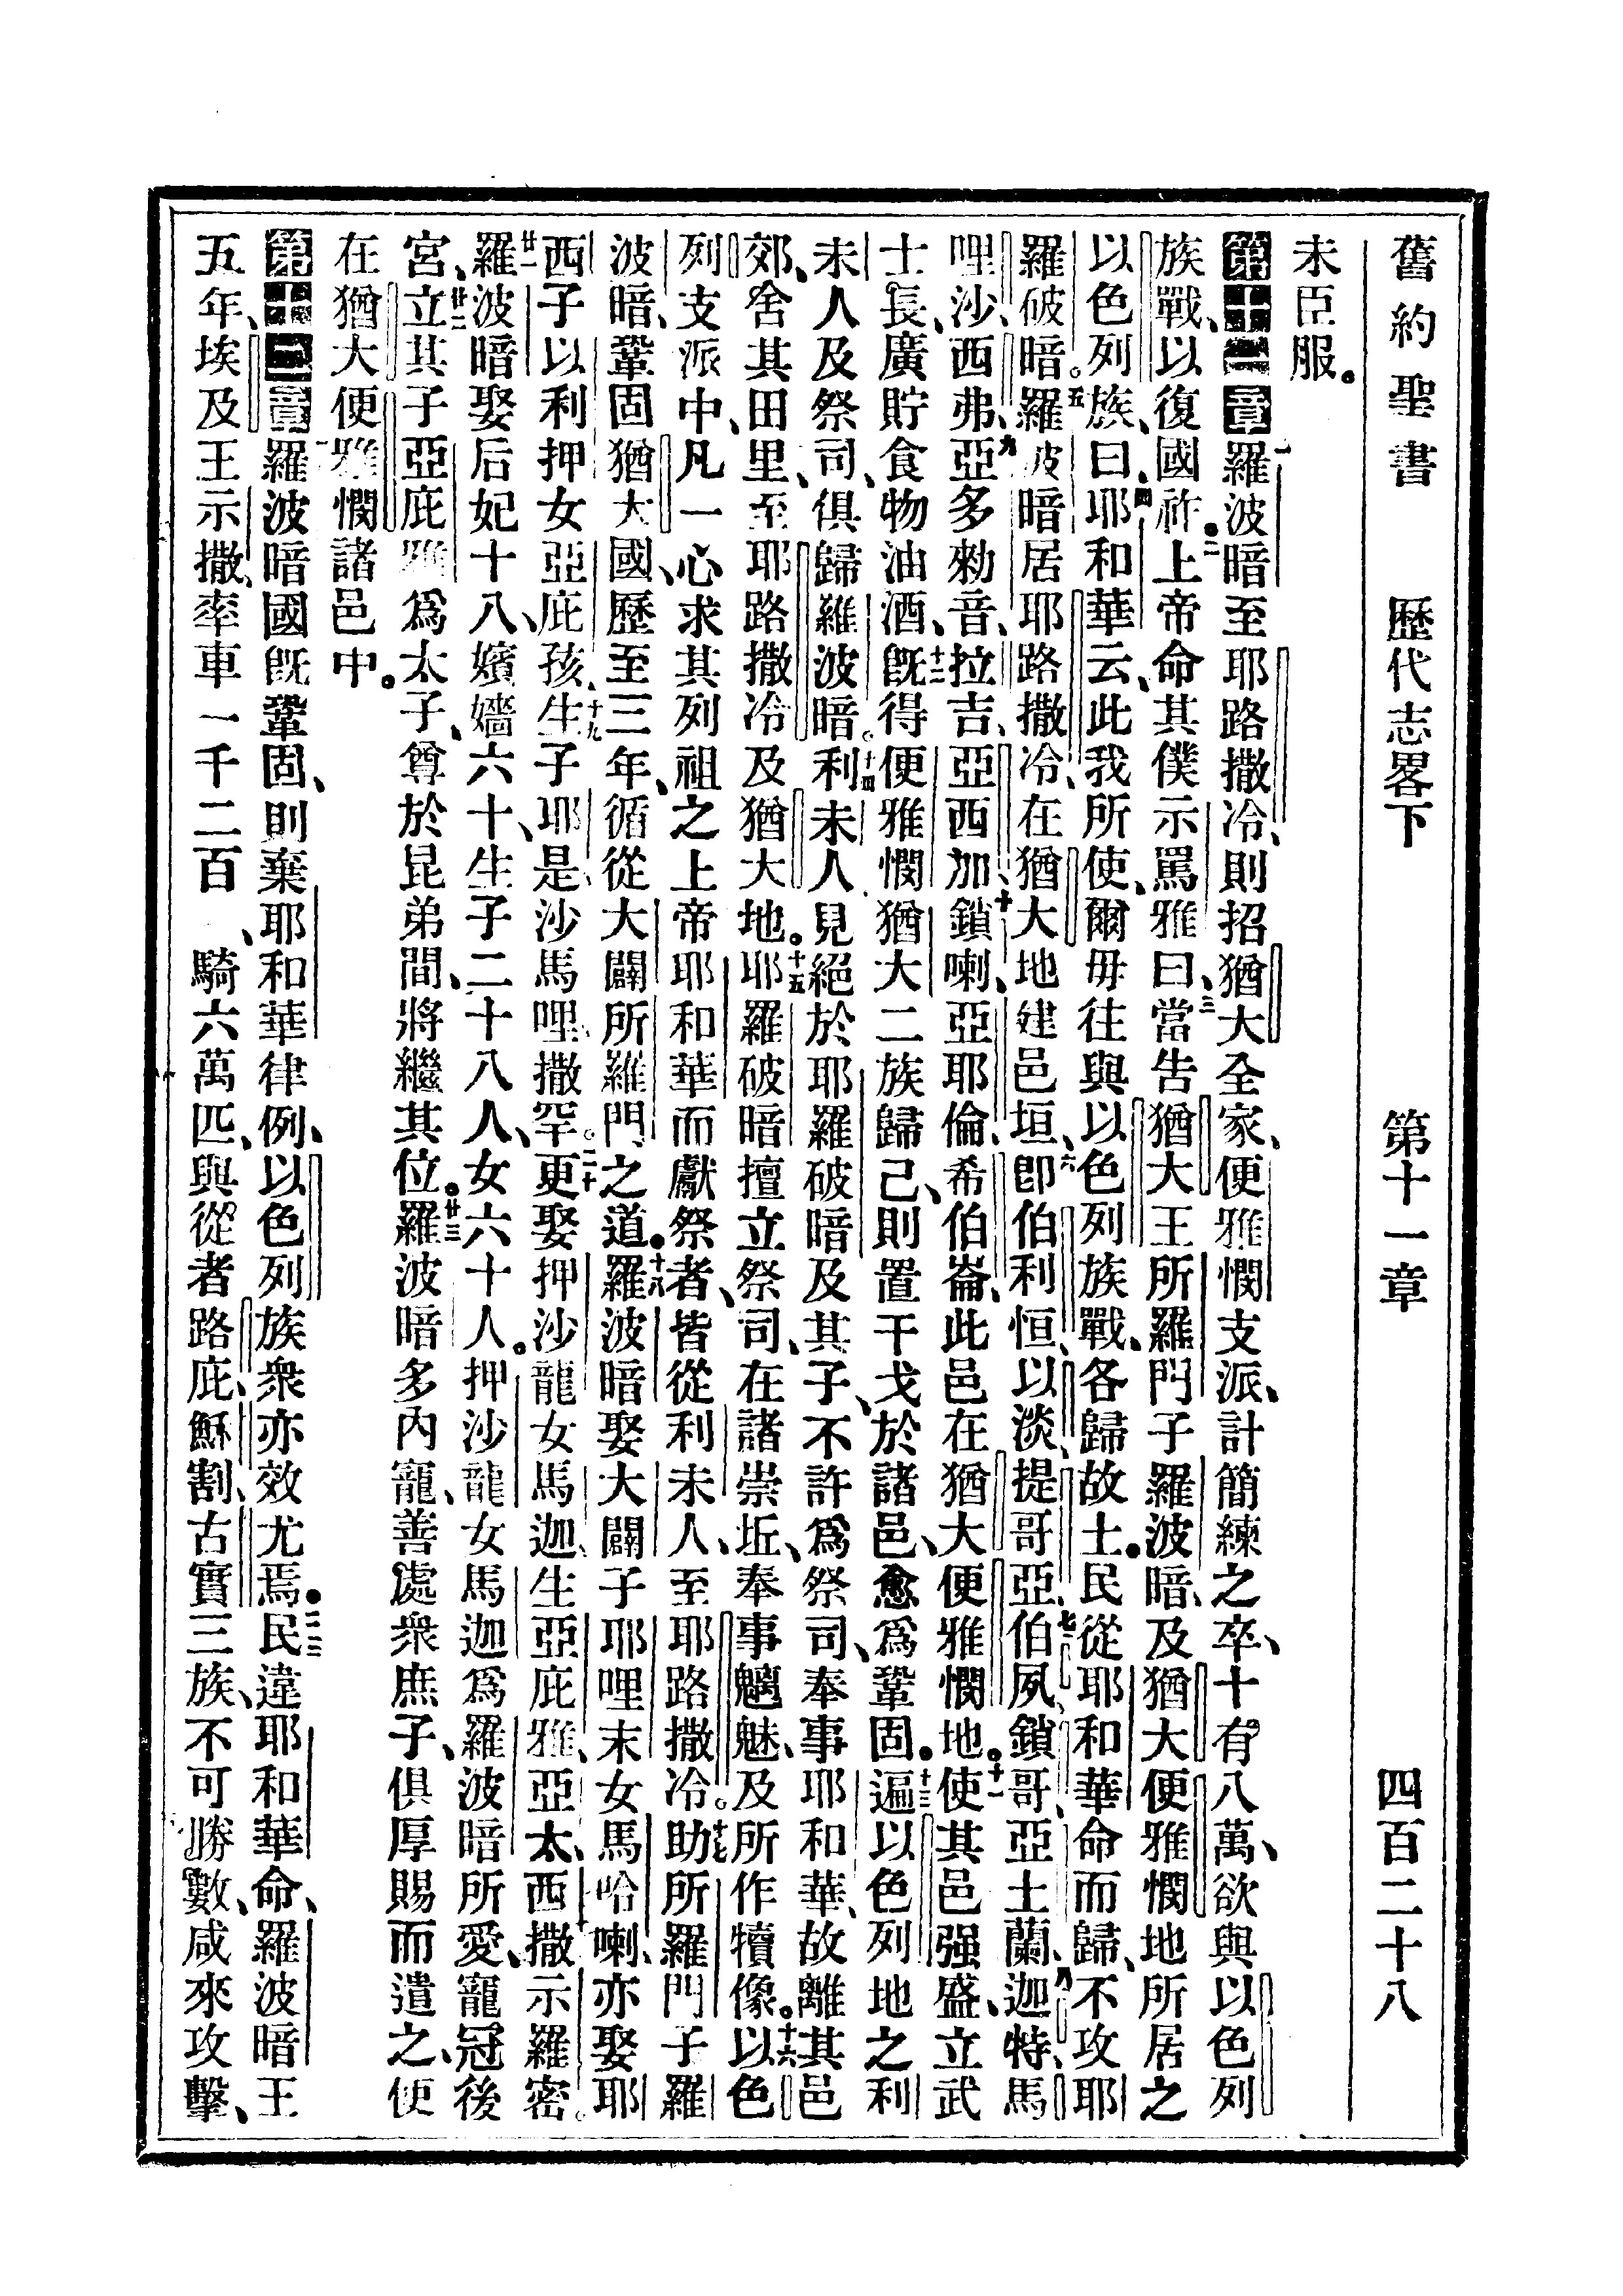 舊約聖書 歷代志畧下 第十一章 四百二十八
未臣服。
第十一章一羅波暗至耶路撒冷、則招猶大全家、便雅憫支派、計簡練之卒、十有八萬、欲與以色列
族戰、以復國祚。二上帝命其僕示罵雅曰、三當告猶大王所羅門子羅波暗、及猶大便雅憫地所居之
以色列族、曰、四耶和華云、此我所使、爾毋往與以色列族戰、各歸故土。民從耶和華命而歸、不攻耶
羅破暗。五羅波暗居耶路撒冷、在猶大地建邑垣、六卽伯利恒、以淡、提哥亞、七伯夙、鎖哥、亞土蘭、八迦特、馬
哩沙、西弗、九亞多勑音、拉吉、亞西加、十鎖喇、亞耶倫、希伯崙、此邑在猶大便雅憫地。十一使其邑强盛、立武
士長、廣貯食物油酒、十二旣得便雅憫猶大二族歸己、則置干戈於諸邑、愈爲鞏固。十三遍以色列地之利
未人及祭司、俱歸羅波暗。十四利未人見絕於耶羅破暗及其子、不許爲祭司、奉事耶和華、故離其邑
郊、舍其田里、至耶路撒冷及猶大地。十五耶羅破暗擅立祭司、在諸崇坵、奉事魑魅、及所作犢像。十六以色
列支派中、凡一心求其列祖之上帝耶和華而獻祭者、皆從利未人、至耶路撒冷。十七助所羅門子羅
波暗、鞏固猶大國、歷至三年、循從大闢所羅門、之道。十八羅波暗娶大闢子耶哩末女馬哈喇、亦娶耶
西子以利押女亞庇孩、十九生子耶是、沙馬哩、撒罕。二十更娶押沙龍女馬迦、生亞庇雅、亞太、西撒、示羅密。
廿一羅波暗娶后妃十八、嬪嬙六十、生子二十八人、女六十人。押沙龍女馬迦爲羅波暗所愛、寵冠後
宮、廿二立其子亞庇雅爲太子、尊於昆弟間、將繼其位。廿三羅波暗多內寵、善處衆庶子、俱厚賜而遣之、使
在猶大便雅憫諸邑中。
第十二章一羅波暗國旣鞏固、則棄耶和華律例、以色列族衆亦效尤焉。二民違耶和華命、羅波暗王
五年、埃及王示撒、率車一千二百、三騎六萬匹、與從者路庇、穌割、古實三族、不可勝數、咸來攻擊、